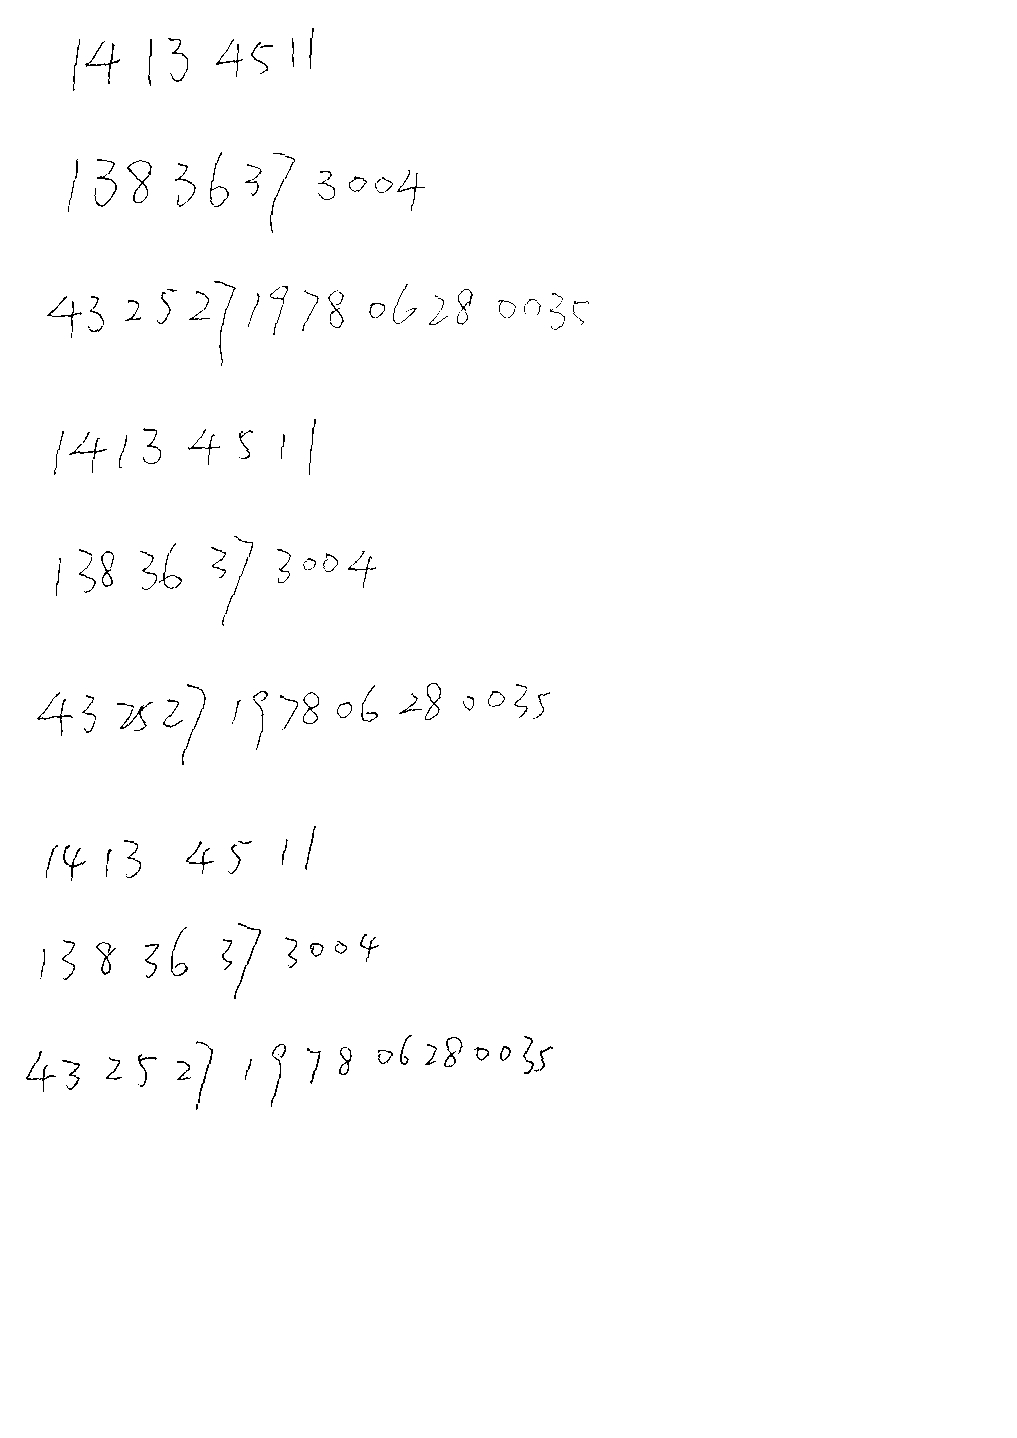 14 13 4511
13836373004
432527197806280035
1413 4511
1383637 3004
432527 197806280035
1413 4511
1383637 3004
432527 197806280035